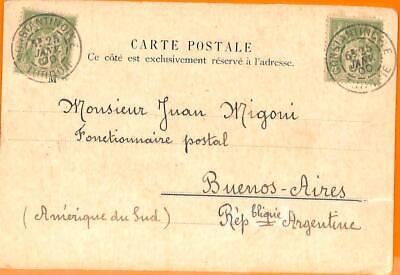 CONSTANTINOPLE
25
JANV
00
CARTE POSTALE
Ce côté est exclusivement réservé à l'adresse.
CONSTANTINOPLE
25
JANV
00
M
Monsieur Juan Migoni
Fonctionnaire postal
Buenos-Aires
(Amérique du Sud) République Argentine